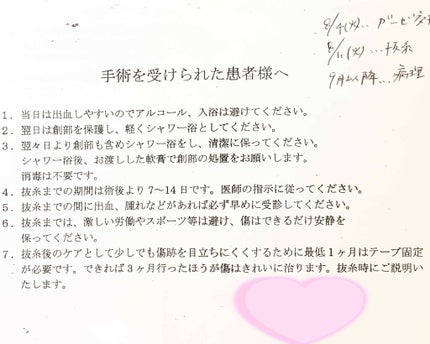 8/4(火)... ガーゼ交
8/11(火)...抜糸
9月以降...病理
手術を受けられた患者様へ
1. 当日は出血しやすいのでアルコール、入浴は避けてください。
2. 翌日は創部を保護し、軽くシャワー浴としてください。
3. 翌々日より創部も含めシャワー浴をし、清潔に保ってください。
シャワー浴後、お渡しした軟膏で創部の処置をお願いします。
消毒は不要です。
4. 抜糸までの期間は術後より7〜14日です。医師の指示に従ってください。
5. 抜糸までの間に出血、腫れなどがあれば必ず早めに受診してください。
6. 抜糸までは、激しい労働やスポーツ等は避け、傷はできるだけ安静を
保ってください。
7. 抜糸後のケアとして少しでも傷跡を目立ちにくくするために最低1ヶ月はテープ固定
が必要です。できれば3ヶ月行ったほうが傷はきれいに治ります。抜糸時にご説明い
たします。